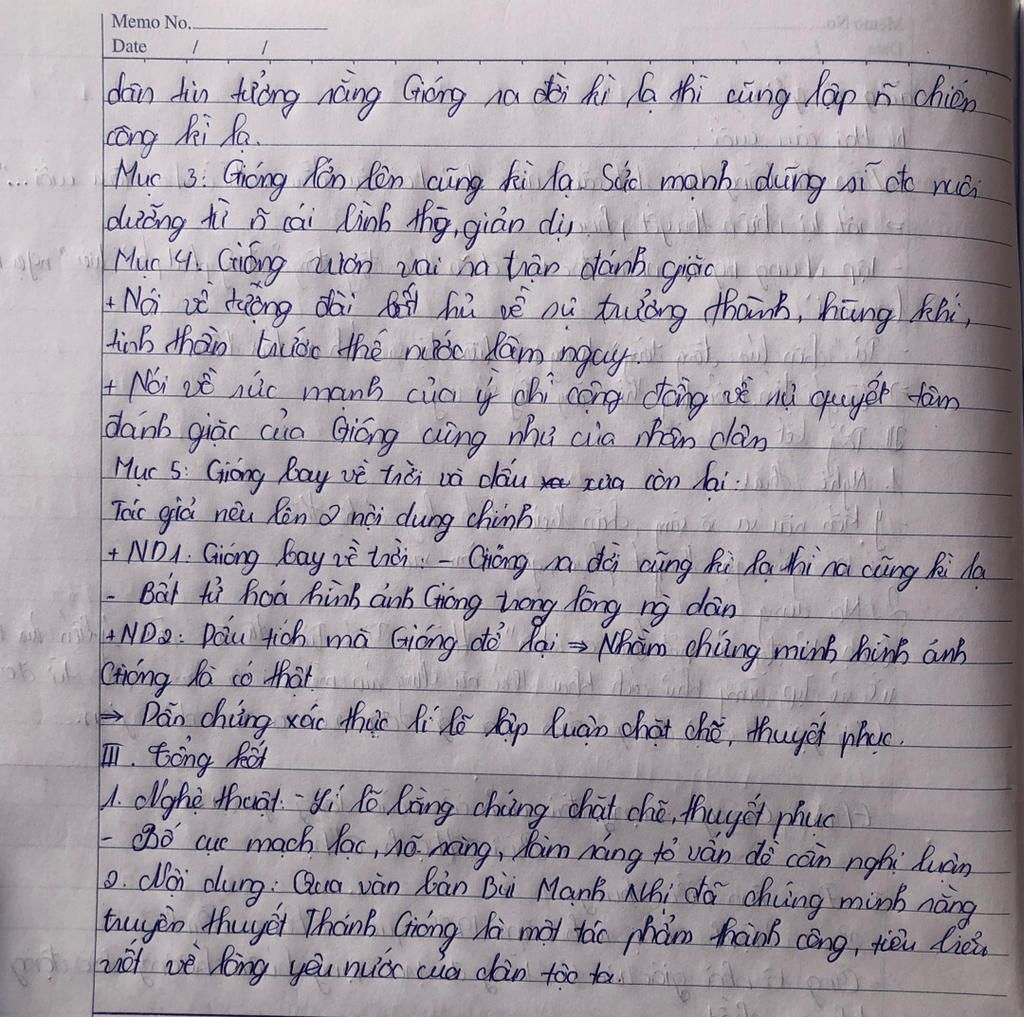 Memo No.
Date / /
dân tin tưởng rằng Gióng ra đời kì lạ thì cũng lập n̄ chiến
công kì lạ.
Mục 3: Gióng lớn lên cũng kì lạ. Sức mạnh dũng sĩ đc nuôi
dưỡng từ n̄ cái bình thg̀, giản dị
Mục 4: Gióng vươn vai ra trận đánh giặc
+ Nói về tưỡng đài bất hủ về sự trưởng thành, hùng khí,
tinh thần trước thế nước lâm nguy.
+ Nói về sức mạnh của ý chí cộng đồng về sự quyết tâm
đánh giặc của Gióng cũng như của nhân dân
Mục 5: Gióng bay về trời và dấu xưa còn lại.
Tác giả nêu lên 2 nội dung chính
+ ND1: Gióng bay về trời: - Gióng ra đời cũng kì lạ thì ra cũng kì lạ
- Bất tử hoá hình ảnh Gióng trong lòng ng̀ dân
+ ND2: Dấu tích mà Gióng để lại ⇒ Nhằm chứng minh hình ảnh
Gióng là có thật
⇒ Dẫn chứng xác thực lí lẽ lập luận chặt chẽ, thuyết phục.
III. Tổng kết
1. Nghệ thuật: - Lí lẽ bằng chứng chặt chẽ, thuyết phục
- Bố cục mạch lạc, rõ ràng, làm sáng tỏ vấn đề cần nghị luận
2. Nội dung: Qua văn bản Bùi Mạnh Nhị đã chứng minh rằng
truyền thuyết Thánh Gióng là một tác phẩm thành công, tiêu biểu
viết về lòng yêu nước của dân tộc ta.